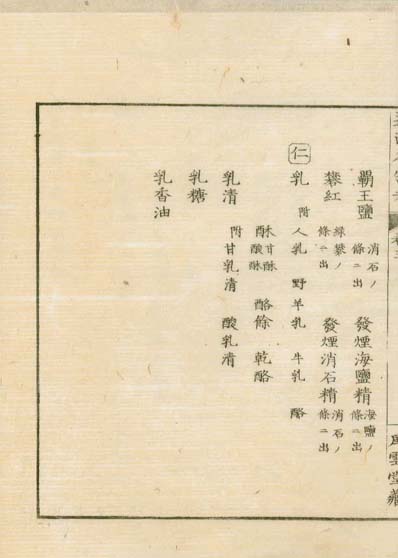 覇王鹽 消石ノ條ニ出 發煙海鹽精 海鹽ノ條ニ出
蘩紅 綠蘩ノ條ニ出 發煙消石精 消石ノ條ニ出
仁
乳 附 人乳 野羊乳 牛乳 酪
酥 甘酥 酸酥 酪餘 乾酪
乳清 附 甘乳清 酸乳清
乳糖
乳香油
風雲堂藏